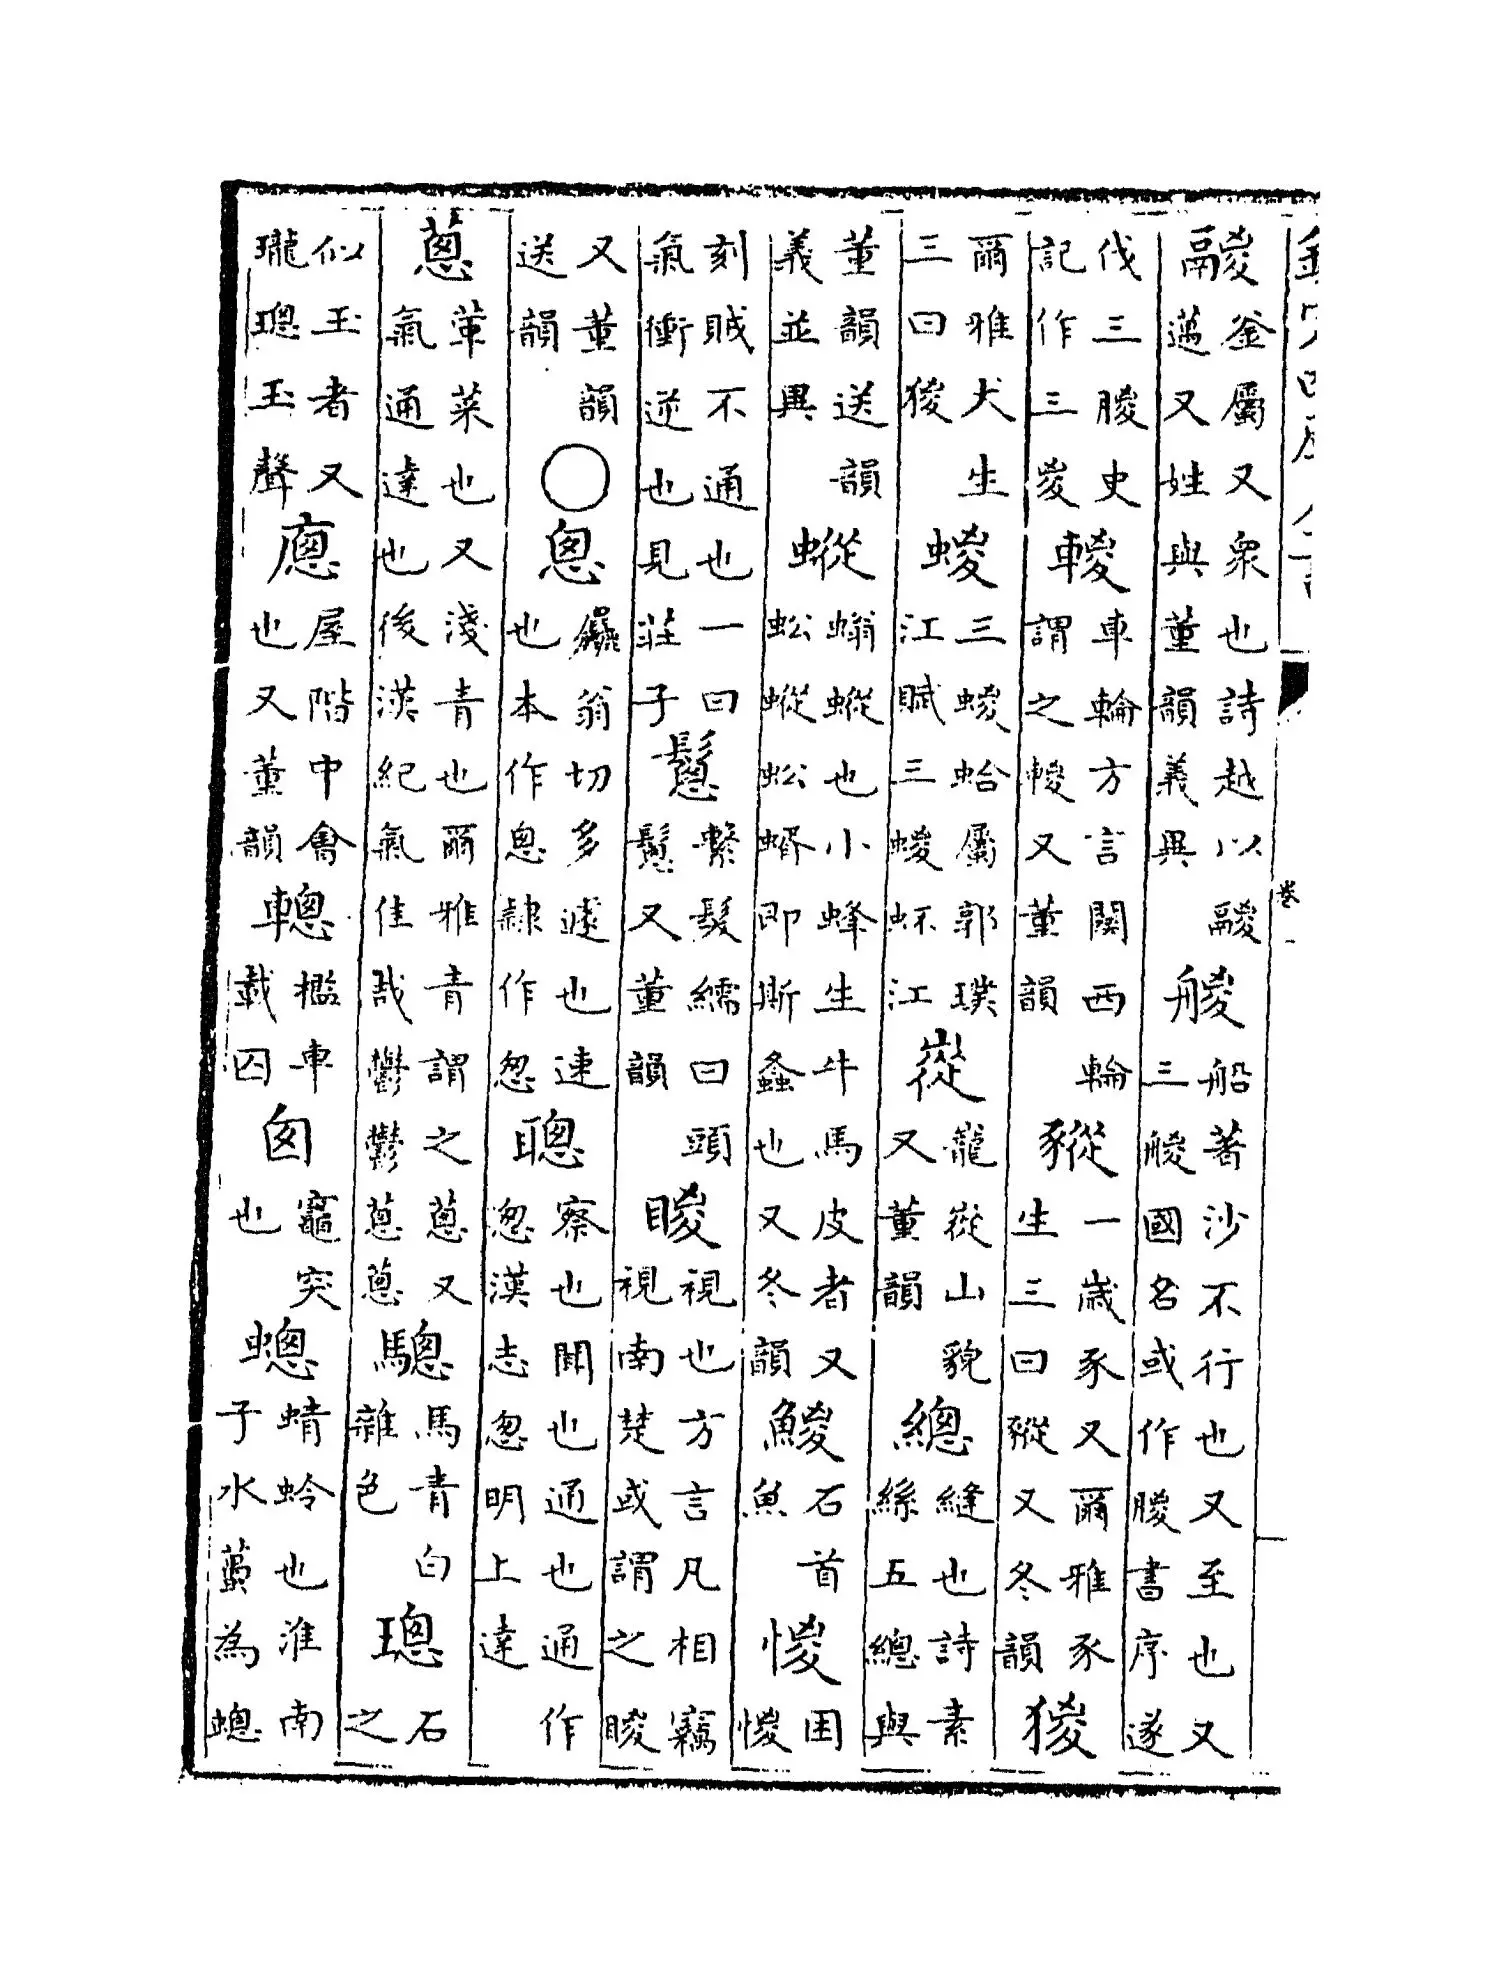 欽定四庫全書 卷一
鬷釜屬又衆也詩越以鬷邁又姓與董韻義異艐船著沙不行也又至也又三艐國名或作朡書序遂
伐三朡史記作三㚇𨍉車輪方言関西輪謂之𨍉又董韻豵一歲豕又爾雅豕生三曰豵又冬韻猣
爾雅犬生三曰猣蝬三蝬蛤屬郭璞江賦三蝬蚶江嵷巃嵷山貌又董韻總縫也詩素絲五總與
董韻送韻義並異䗥螉䗥也小蜂生牛馬皮者又蚣䗥蚣蝑即斯螽也又冬韻鯼石首魚惾困惾
刻賊不通也一曰氣衝逆也見莊子繫髮繻曰頭又董韻䁓視也方言凡相竊視南楚或謂之䁓
又董韻送韻○悤麤翁切多遽也速也本作悤隸作怱聰察也聞也通也通作怱漢志怱明上達
蔥葷菜也又淺青也爾雅青謂之蔥又氣通達也後漢紀氣佳哉鬱鬱蔥蔥驄馬青白雜色璁石之
似玉者又瓏璁玉聲㢔屋階中會也又董韻䡯檻車載囚囱竈突也蟌蜻蛉也淮南子水蠆為蟌